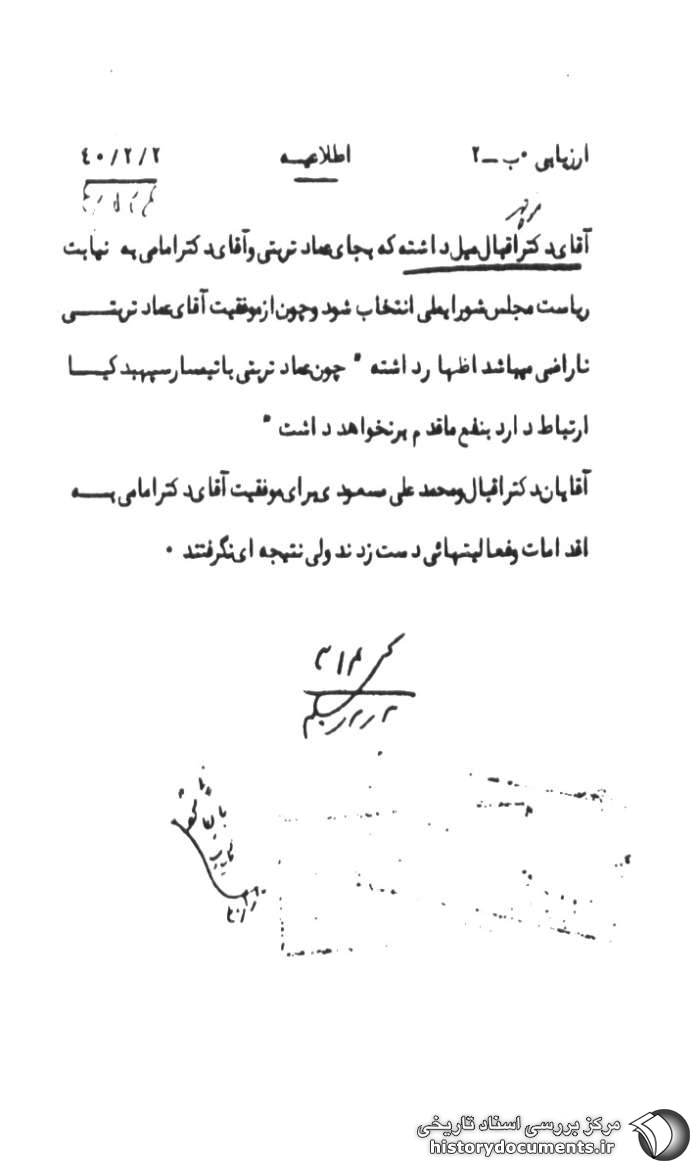 ارزیابی ۰ب – ۲ اطلاعیه ۴۰/۲/۲
آقای دکتر اقبال میل داشته که بجای عماد تربتی و آقای دکتر امامی به نیابت
ریاست مجلس شورایملی انتخاب شود و چون از موفقیت آقای عماد تربتی
ناراضی میباشد اظهار داشته " چون عماد تربتی با تیمسار سپهبد کیا
ارتباط دارد بنفع ما قدم برنخواهد داشت "
آقایان دکتر اقبال و محمد علی مسعودی برای موفقیت آقای دکتر امامی به
اقدامات و فعالیتهائی دست زدند ولی نتیجه ای نگرفتند ۰
مرکز بررسی اسناد تاریخی
historydocuments.ir